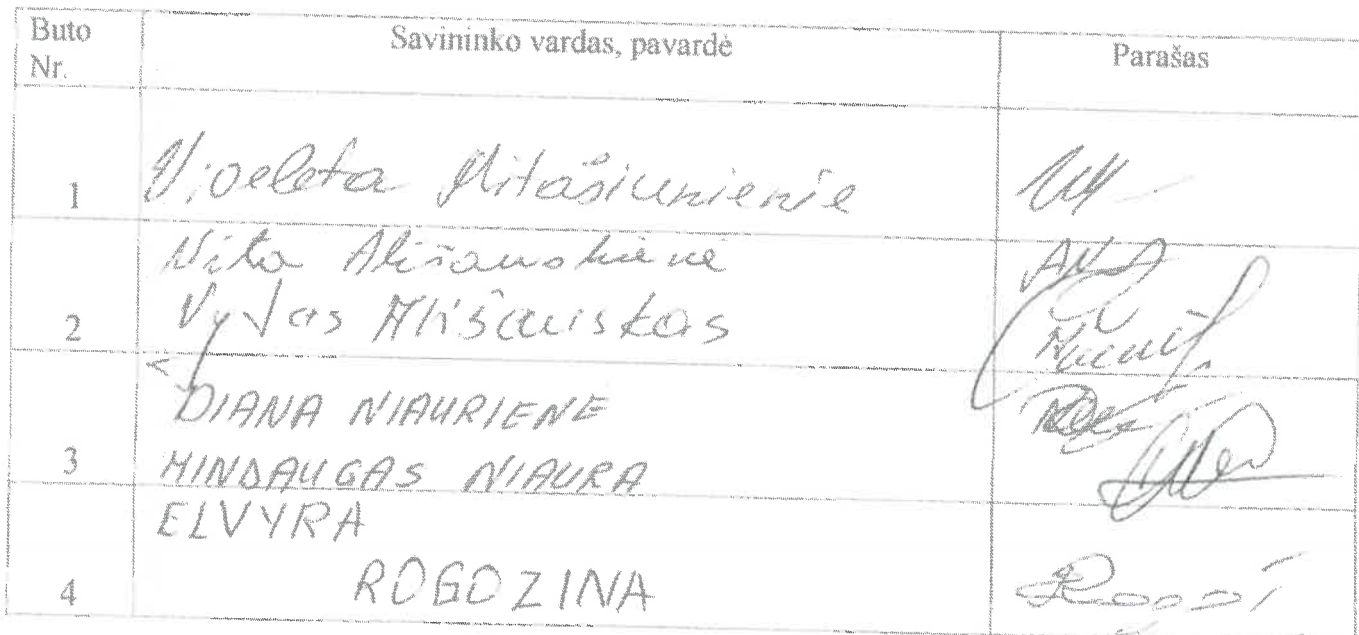 Buto Nr.
Savininko vardas, pavardė
Parašas
1
Violeta Mitašiunienė
Vita Ališauskienė
Vytas Ališauskas
2
DIANA NIAURIENE
3
MINDAUGAS NIAURA
ELVYRA
ROGOZINA
4